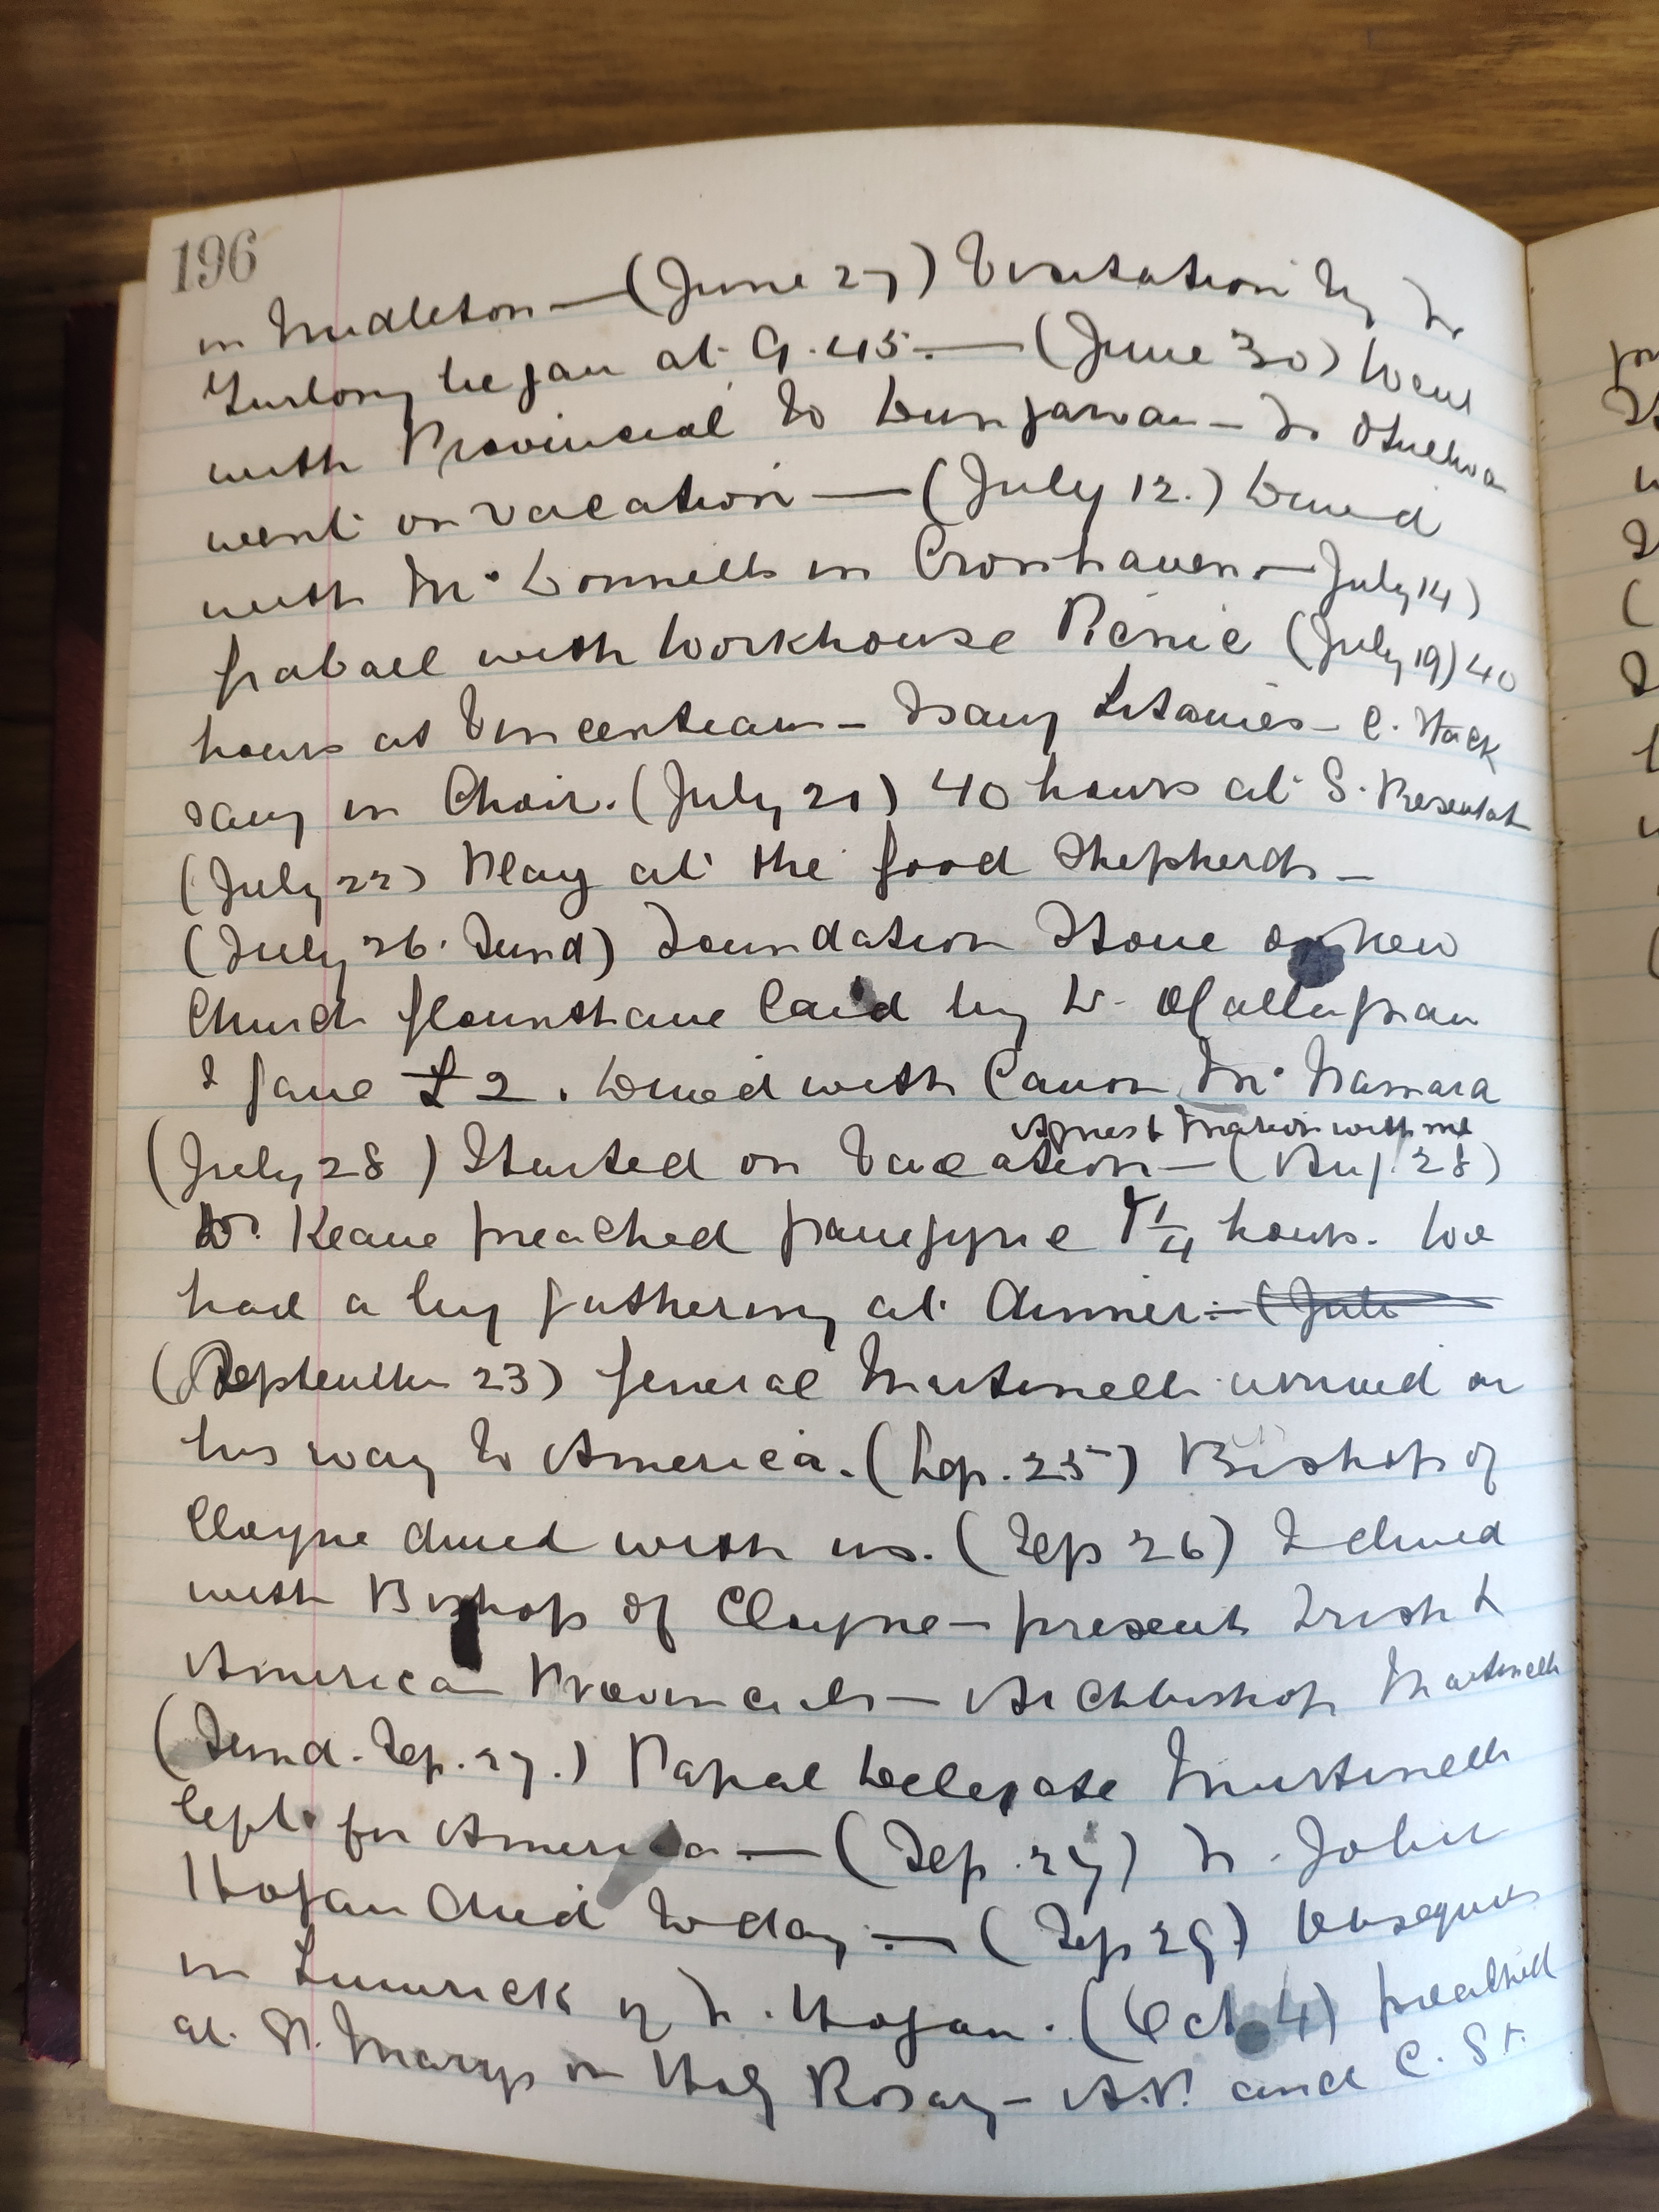 196
in Midleton — (June 27) Visitation by Fr
Furlong began at 9.45. — (June 30) Went
with Provincial to Dungarvan — Fr OSulliva
went on vacation — (July 12.) Dined
with Mc Donnells in Crosshaven — July 14)
with Workhouse Picnic (July 19) 40
hours at Vincentians — I sang Litanies — C. Stack
sang in Choir. (July 21) 40 hours at S. Presentat
(July 22) Play at the Good Shepherds —
(July 26. Sund) Foundation Stone of New
Church Glounthaune laid by Dr. OCallaghan
I gave £2. Dined with Canon Mc Namara
Agnes & Marion with me
(July 28) Started on Vacation — (Aug. 28)
Dr. Keane preached panegyric 1 1/4 hours. We
had a big gathering at dinner: — (Jul
(September 23) General Martinelli arrived on
his way to America. (Sep. 25) Bishop of
Cloyne dined with us. (Sep 26) I dined
with Bishop of Cloyne — present Irish &
American Provincials — Archbishop Martinelli
(Sund. Sep. 27.) Papal Delegate Martinelli
left for America — (Sep. 27) Fr. John
Hogan died today: — (Sep 29) Obsequies
in Limerick of Fr. Hogan. (Oct 4) preached
at St. Marys on Holy Rosary — A.P. and C. St.